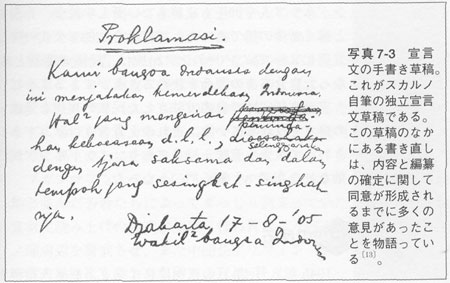 Proklamasi.
Kami bangsa Indonesia dengan
ini menjatakan kemerdekaan Indonesia.
Hal² jang mengenai
peminda-
han kekoeasaan d.l.l., dioesahakan
selenggarakan
dengan tjara saksama dan dalam
tempoh jang sesingkat-singkat
nja.
Djakarta 17-8-'05
Wakil² bangsa Indonesia
写真7-3 宣言
文の手書き草稿。
これがスカルノ
自筆の独立宣言
文草稿である。
この草稿のなか
にある書き直し
は、内容と編纂
の確定に関して
同意が形成され
るまでに多くの
意見があったこ
とを物語ってい
る[13]。